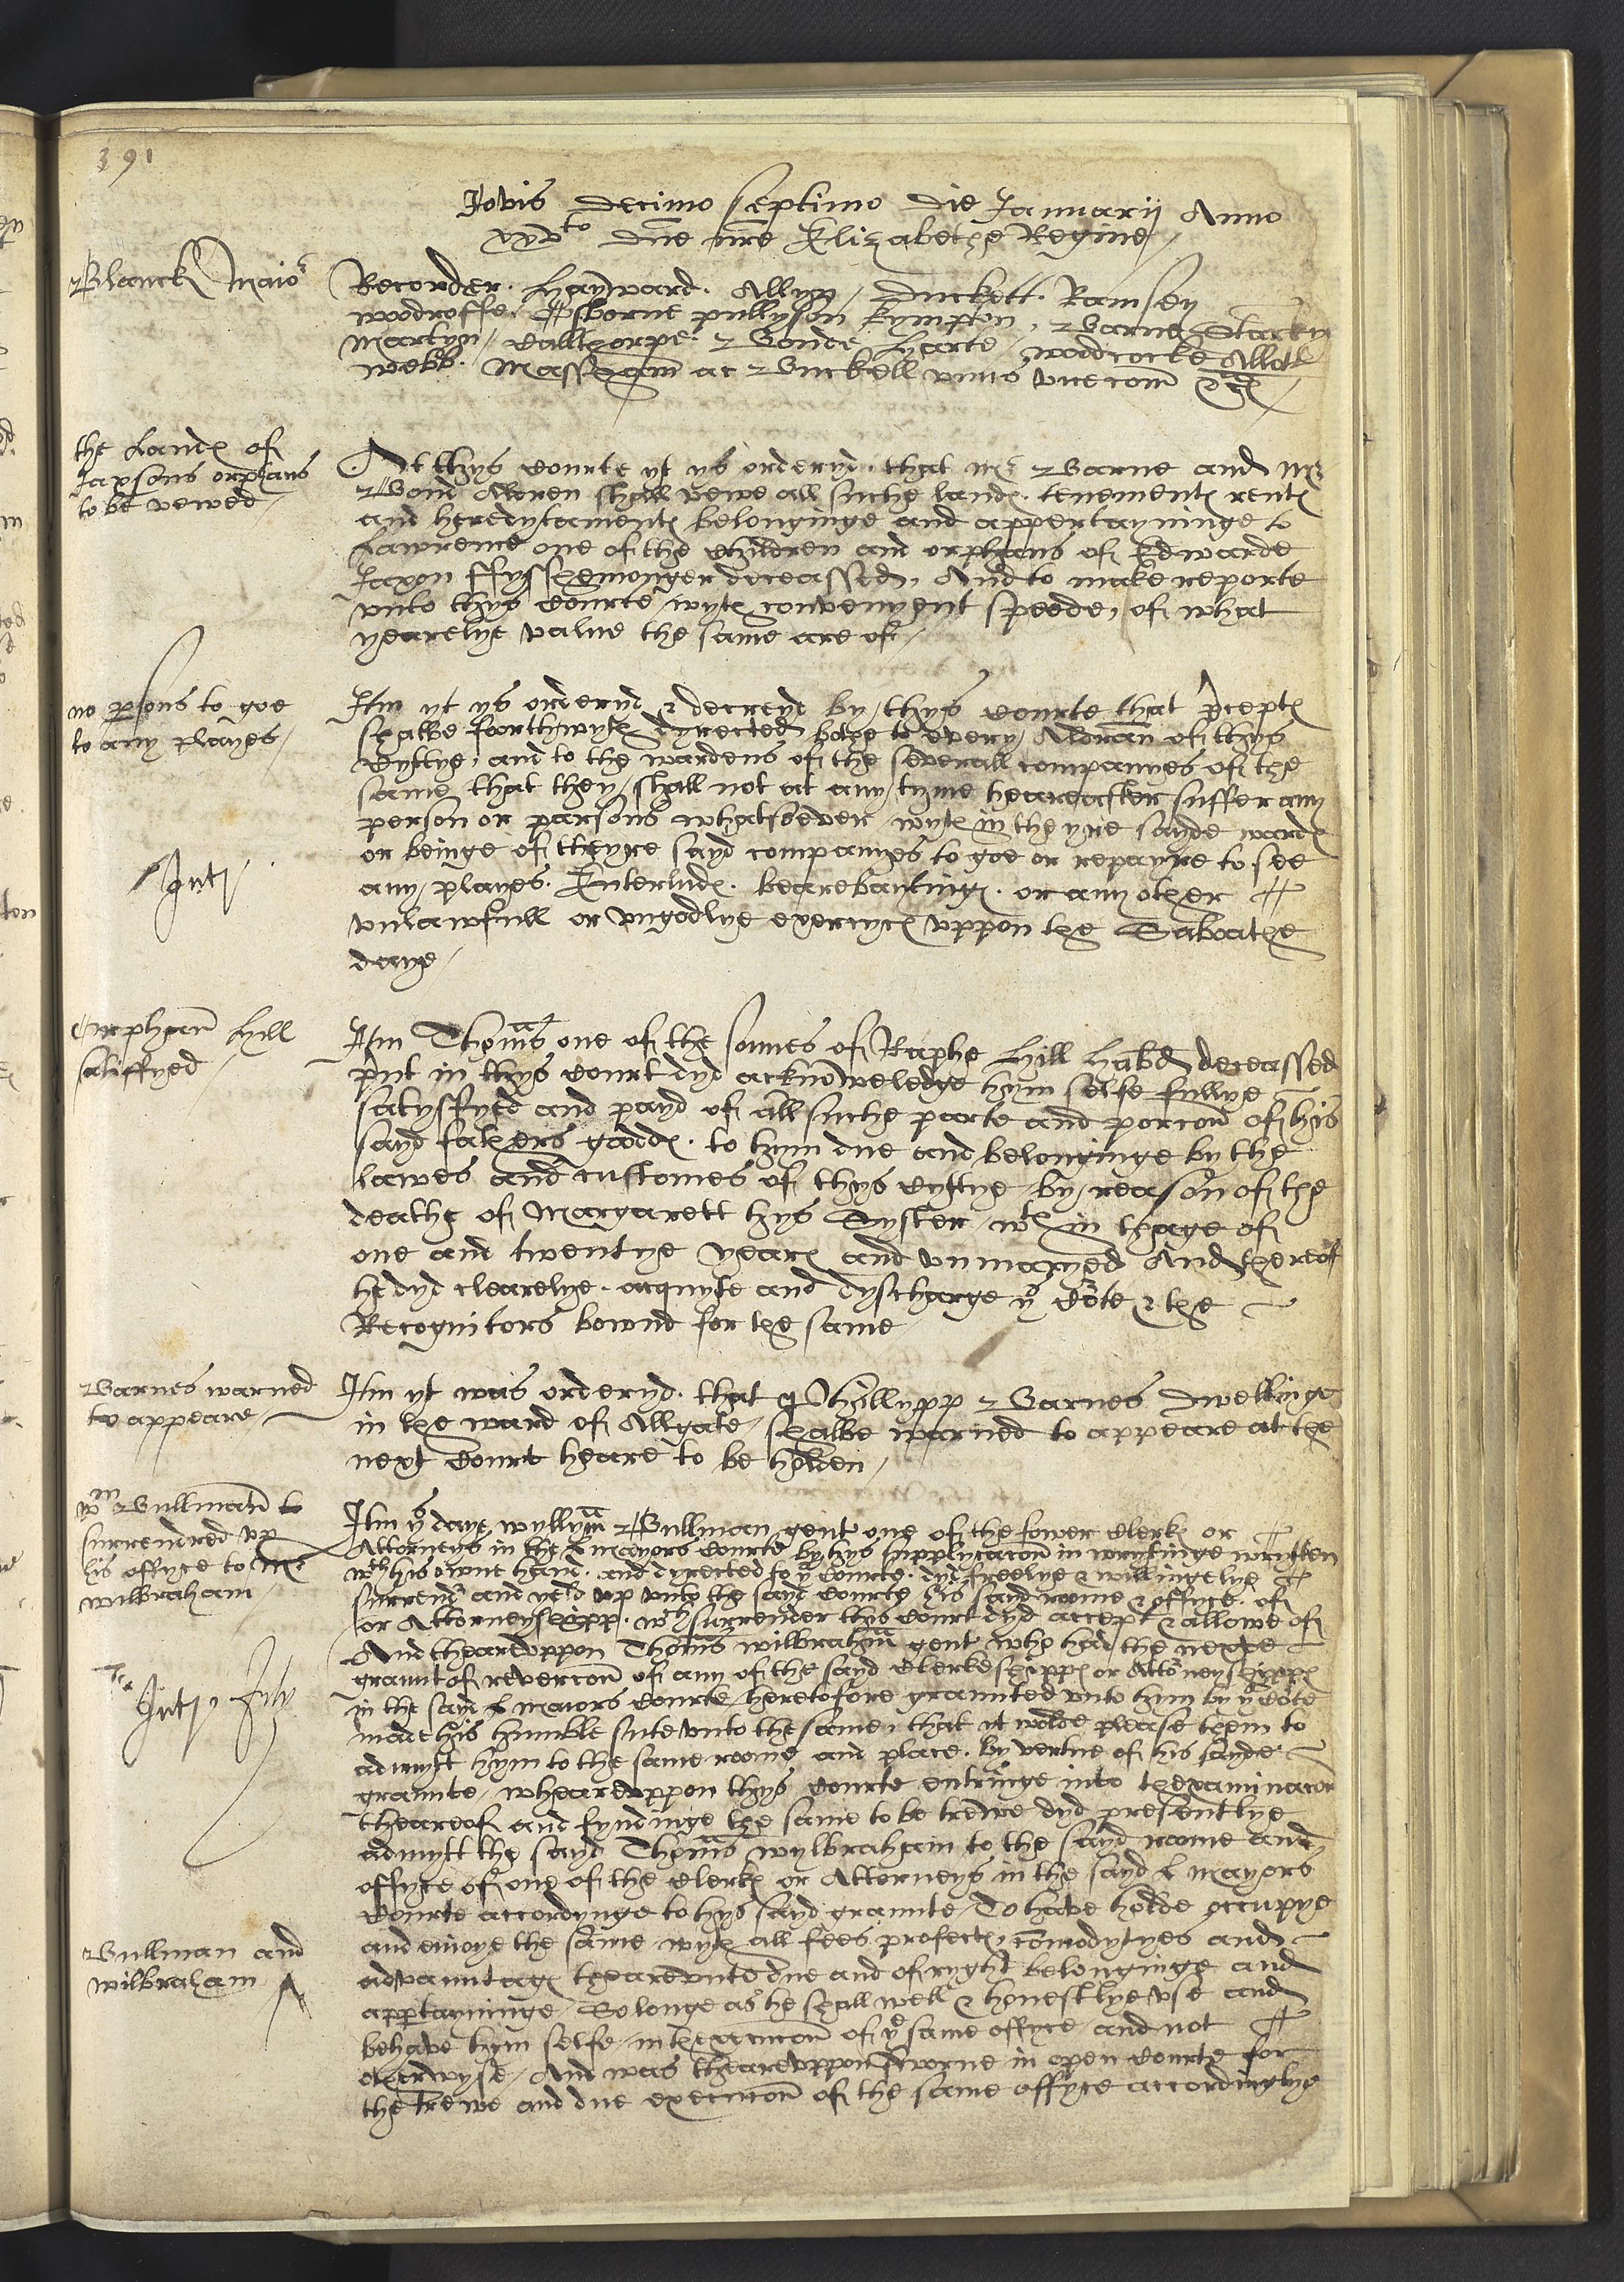 391
Jovis decimo septimo die Januarij Anno
xxvto dne nre Elizabethe Regine
Blanck Maior
Recorder. Hayward. Allyn, Duckett. Ramsey
woodroffe, Osborne pullyson kympton, Barne Starky
Martyn, Calthorpe. Bonde, Harte, woodcocke Allott
webb. Massham ac Buckell unus vicecom &c
the Landes of
Jaxsons orphans
to be vewed
At thys Courte yt ys orderyd. that Mr Barne and Mr
Bond Aldren shall vewe all suche landes. tenementes rentes
and heredytamentes belonginge and appertayninge to
Lawrence one of the Children and orphans of Edwarde
Jaxon ffysshemonger deceassed, And to make reporte
unto thys Courte wyth convenyent speede, of what
yearelye value the same are of
no persons to goe
to any playes
Intr
Itm yt ys orderyd & decreyd by thys Courte that preceptes
shalbe foorthwyth dyrected bothe to every Aldrman of thys
Cyttye, and to the wardens of the severall companyes of the
same that they shall not at any tyme heareafter suffer any
person or parsons whatsoever wyth in theyre sayde wardes
or beinge of theyre sayd companyes to goe or repayre to see
any playes. Enterludes. bearebaytinges. or any other
unlawfull or ungodlye exercyces uppon the Sabothe
daye
Orphan Hill
satiffyed
Itm Thomas one of the sonnes of Raphe Hill habd deceassed
pnt in thys Court dyd acknoweledge hym selfe fullye
satysfyed and payd of all suche parte and porcon of his
sayd fathers goodes. to hym due and belonginge by the
lawes and customes of thys Cyttye by reason of the
deathe of Margarett hys Syster, wth in thage of
one and twentye yeares and unmaryed And thereof
he dyd clearelye. acquyte and dyscharge ys Corte & the
Recognitors bownd for the same
Barnes warned
to appeare
Itm yt was orderyd. that Phillypp Barnes dwellinge
in the ward of Allgate, shalbe warned to appeare at the
next Court heare to be holden
Wm Bullman to
surrendred up
his offyce to Mr
wilbraham
Intr
Itm ys daye wyllym Bullman gent one of the fower Clerkes or
Attorneys in the L mayors Courte by hys supplycacon in wrytinge wrytten
wth his owne hand. and dyrected to ys Courte. dyd freelye & willingelye
surrendr and yeld up unto the sayd Courte his sayd roome & offyce. of
or Attorneyshipp. wch surrender thys Court dyd accept & allowe of
And theareuppon Thomas wilbraham gent who had the nexte
graunt of revercon of any of the sayd Clerkeshippes or Attorneyshippes
in the sayd L maiors Courte heretofore graunted unto hym by ys Corte
made his humble sute unto the same, that yt wolde please them to
admytt hym to the same roome and place. by vertue of his sayde
graunte, wheareuppon thys Courte entringe into thexaminacon
theareof and fyndinge the same to be trewe dyd presentlye
admytt the sayd Thomas wylbraham to the sayd roome and
offyce of one of the Clerkes or Attorneys in the sayd L mayors
Courte accordynge to hys sayd graunte, To have holde occupye
Bullman and
wilbraham
and enioye the same wyth all fees profectes, comodytyes and
advauntages theareunto due and of ryght belonginge and
appertayninge, So longe as he shall well & honestlye use and
behave hym selfe in thexecucon of ye same offyce and not
otherwyse, And was theareuppon sworne in open Courte for
the trewe and due execucon of the same offyce accordinglye